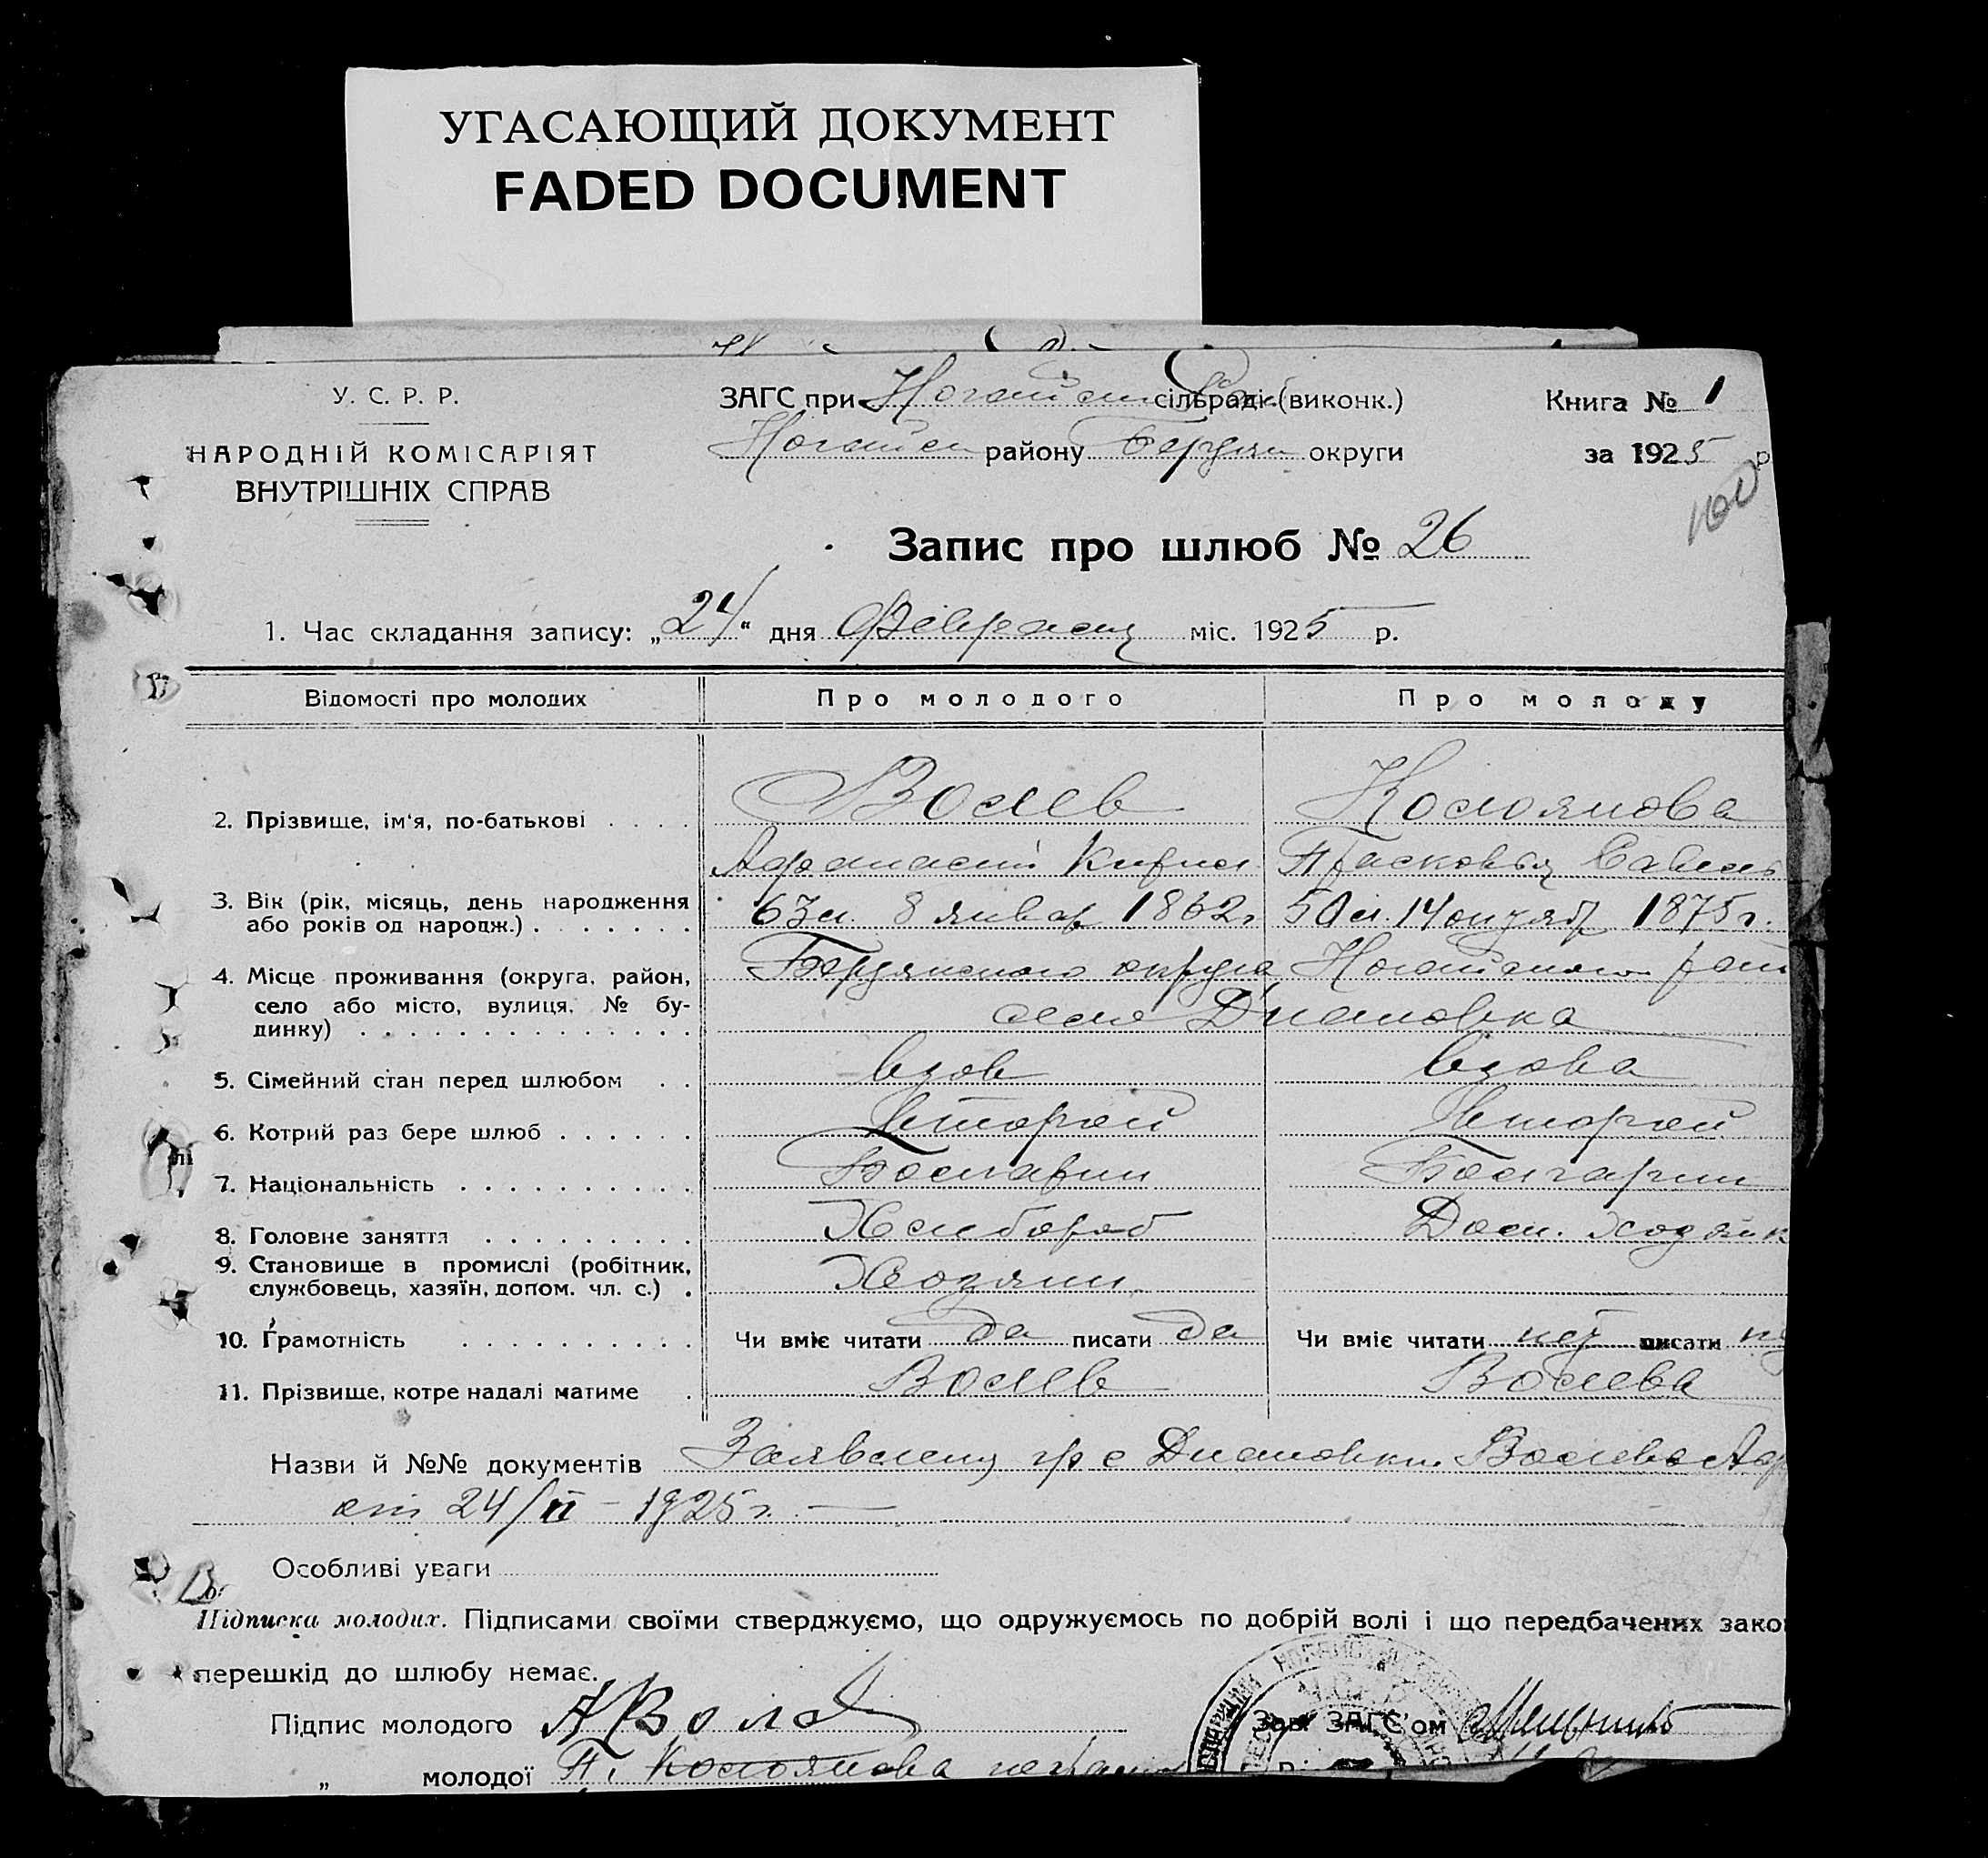 УГАСАЮЩИЙ ДОКУМЕНТ
FADED DOCUMENT
У. С. Р. Р.
НАРОДНІЙ КОМІСАРІЯТ
ВНУТРІШНІХ СПРАВ
ЗАГС при Ногайськ сільраді (виконк.)
Ногайск району Бердян округи
Книга № 1
за 1925 р
100
Запис про шлюб № 26
1. Час складання запису: „24“ дня Февраля міс. 1925 р.
Відомості про молодих Про молодого Про молоду
2. Прізвище, ім'я, по-батькові . . . . Волев Колоянова
Афанасий Кирил Прасковья Савель
3. Вік (рік, місяць, день народження 63 л. 8 январ 1862 г 50 л. 14 октяб 1875 г.
або років од народж.) . . . . . . .
4. Місце проживання (округа, район, Бердянского округа Ногайского рай
село або місто, вулиця, № бу- село Диановка
динку) . . . . . . . . . . . . . .
5. Сімейний стан перед шлюбом . . вдов вдова
6. Котрий раз бере шлюб . . . . . . второй второй
7. Національність . . . . . . . . . . Болгарин Болгарин
8. Головне заняття . . . . . . . . . Хлибороб Дом. хозяйк
9. Становище в промислі (робітник,
службовець, хазяїн, допом. чл. с.) . Хозяин
10. Грамотність . . . . . . . . . . Чи вміє читати да писати да Чи вміє читати нет писати не
11. Прізвище, котре надалі матиме . Волев Волева
Назви й №№ документів Заявления гр с Диановки Волева Аф
от 24/II – 1925 г. —
Особливі уваги
Підписка молодих. Підписами своїми стверджуємо, що одружуємось по добрій волі і що передбачених зако
перешкід до шлюбу немає.
Підпис молодого АВолев Зав. ЗАГС'ом
„ молодої П. Колоянова неграмот